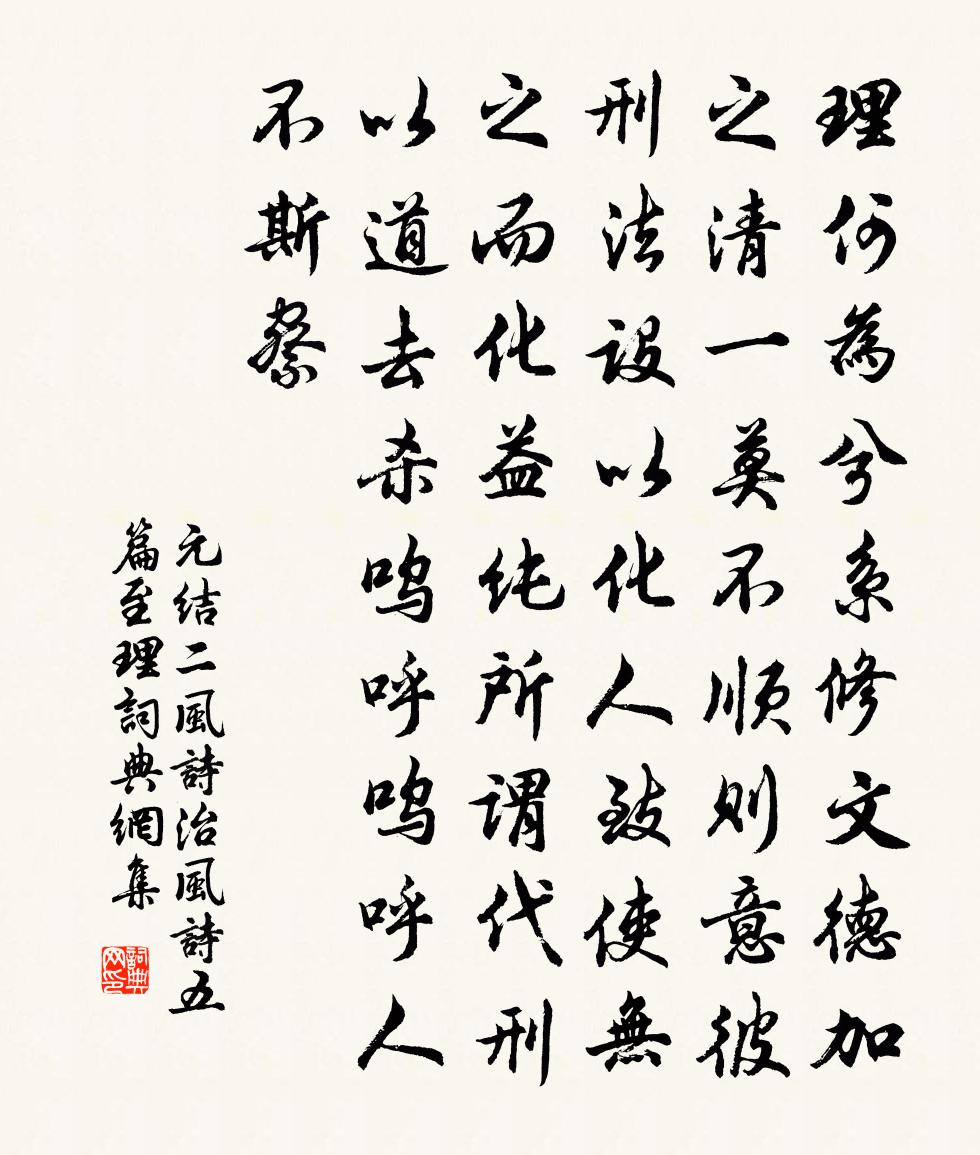 理何為兮系修文德加
之清一莫不顺则意彼
刑法设以化人致使無
之而化益纯所谓代刑
以道去杀呜呼呜呼人
不斯察
元结二風詩治風詩五
篇至理詞典網集
詞典网印